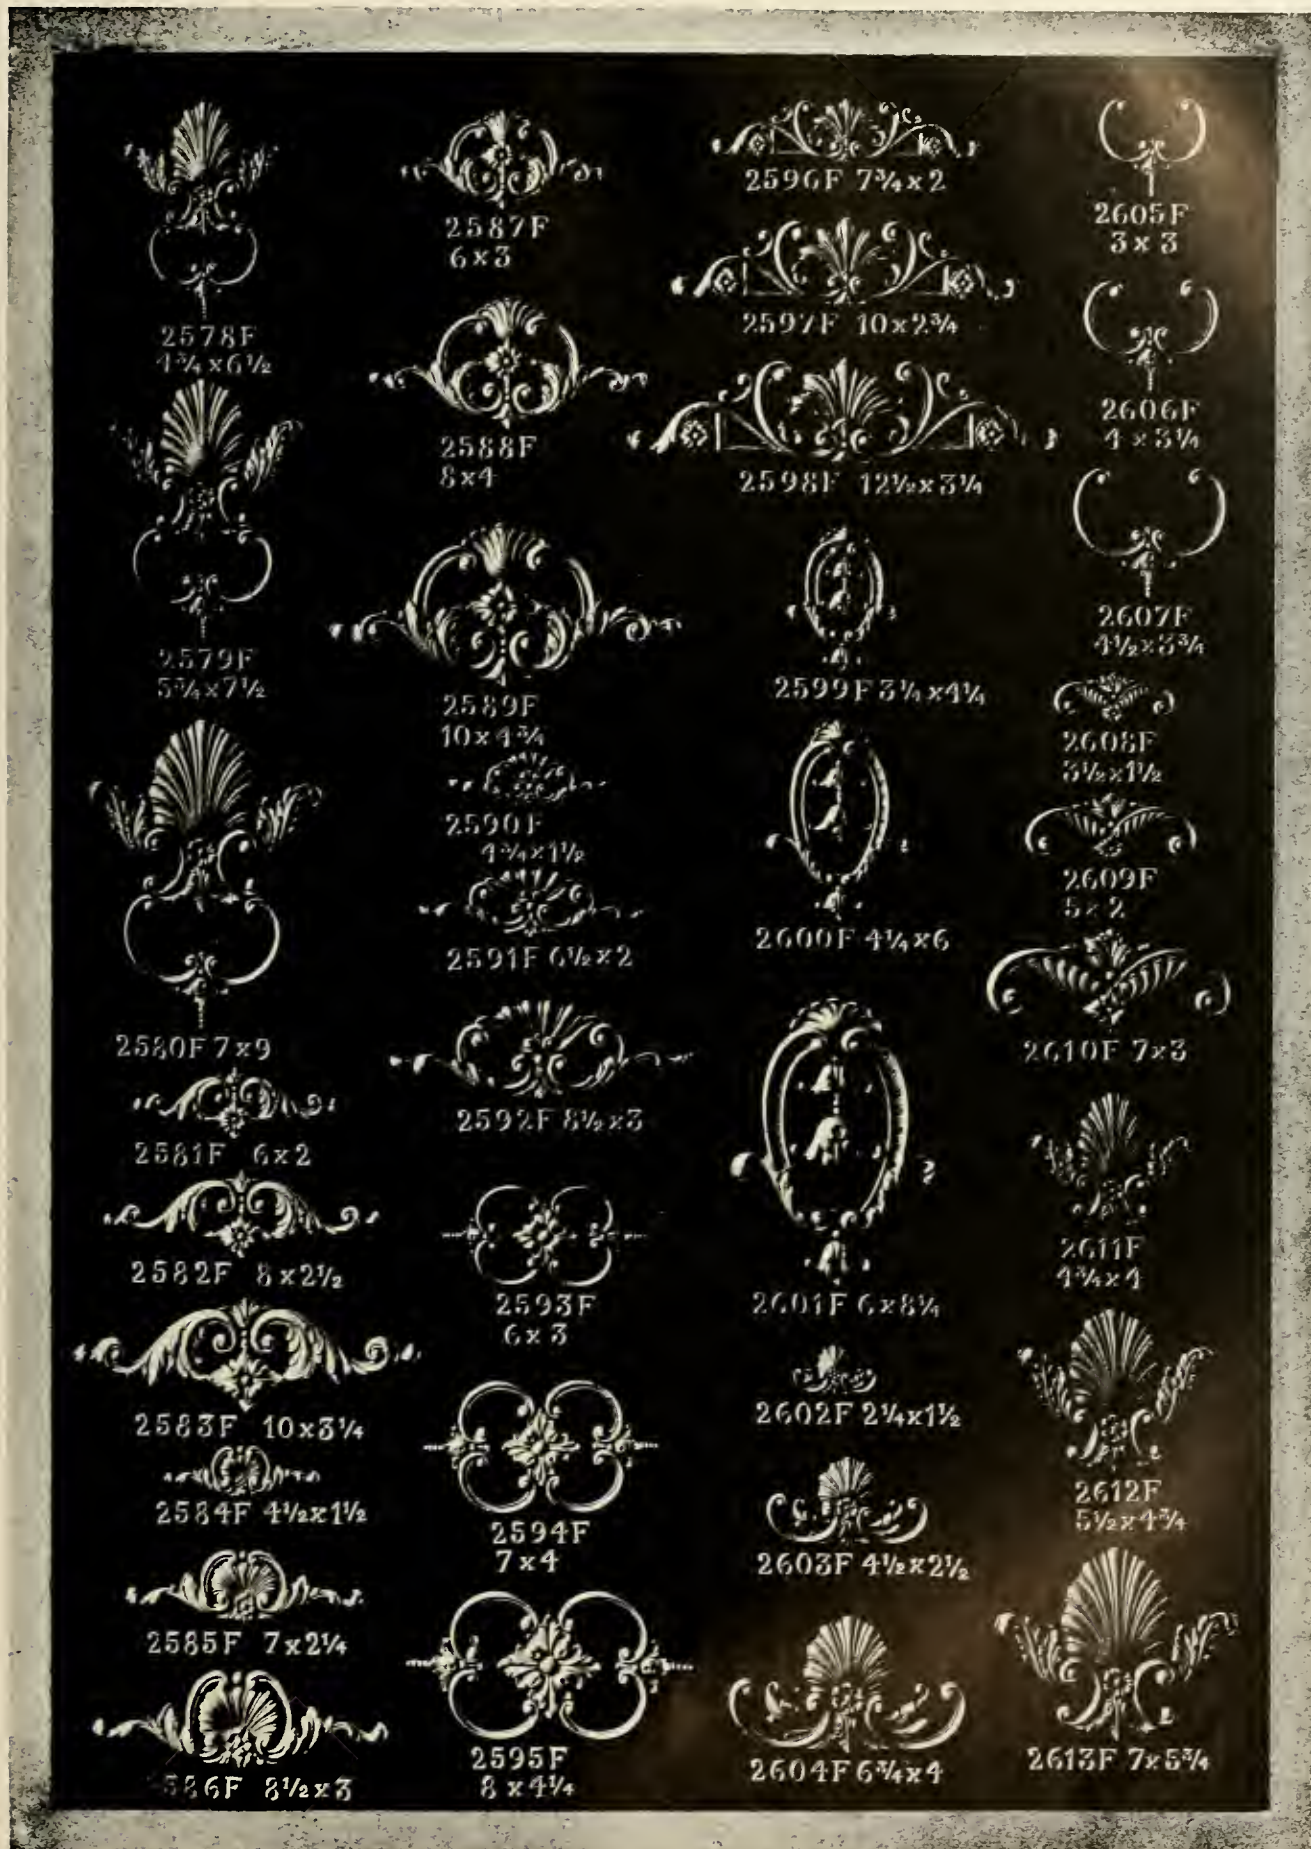 2578F
4¾x6½
2579F
5¾x7½
2580F 7x9
2581F 6x2
2582F 8x2½
2583F 10x3¼
2584F 4½x1½
2585F 7x2¼
586F 8½x3
2587F
6x3
2588F
8x4
2589F
10x4¾
2590F
4¾x1½
2591F 6½x2
2592F 8½x3
2593F
6x3
2594F
7x4
2595F
8x4¼
2596F 7¾x2
2597F 10x2¾
2598F 12½x3¼
2599F 3¼x4¼
2600F 4¼x6
2601F 6x8¼
2602F 2¼x1½
2603F 4½x2½
2604F 6¾x4
2605F
3x3
2606F
4x3¼
2607F
4½x3¾
2608F
3½x1½
2609F
5x2
2610F 7x3
2611F
4¾x4
2612F
5½x4¾
2613F 7x5¾